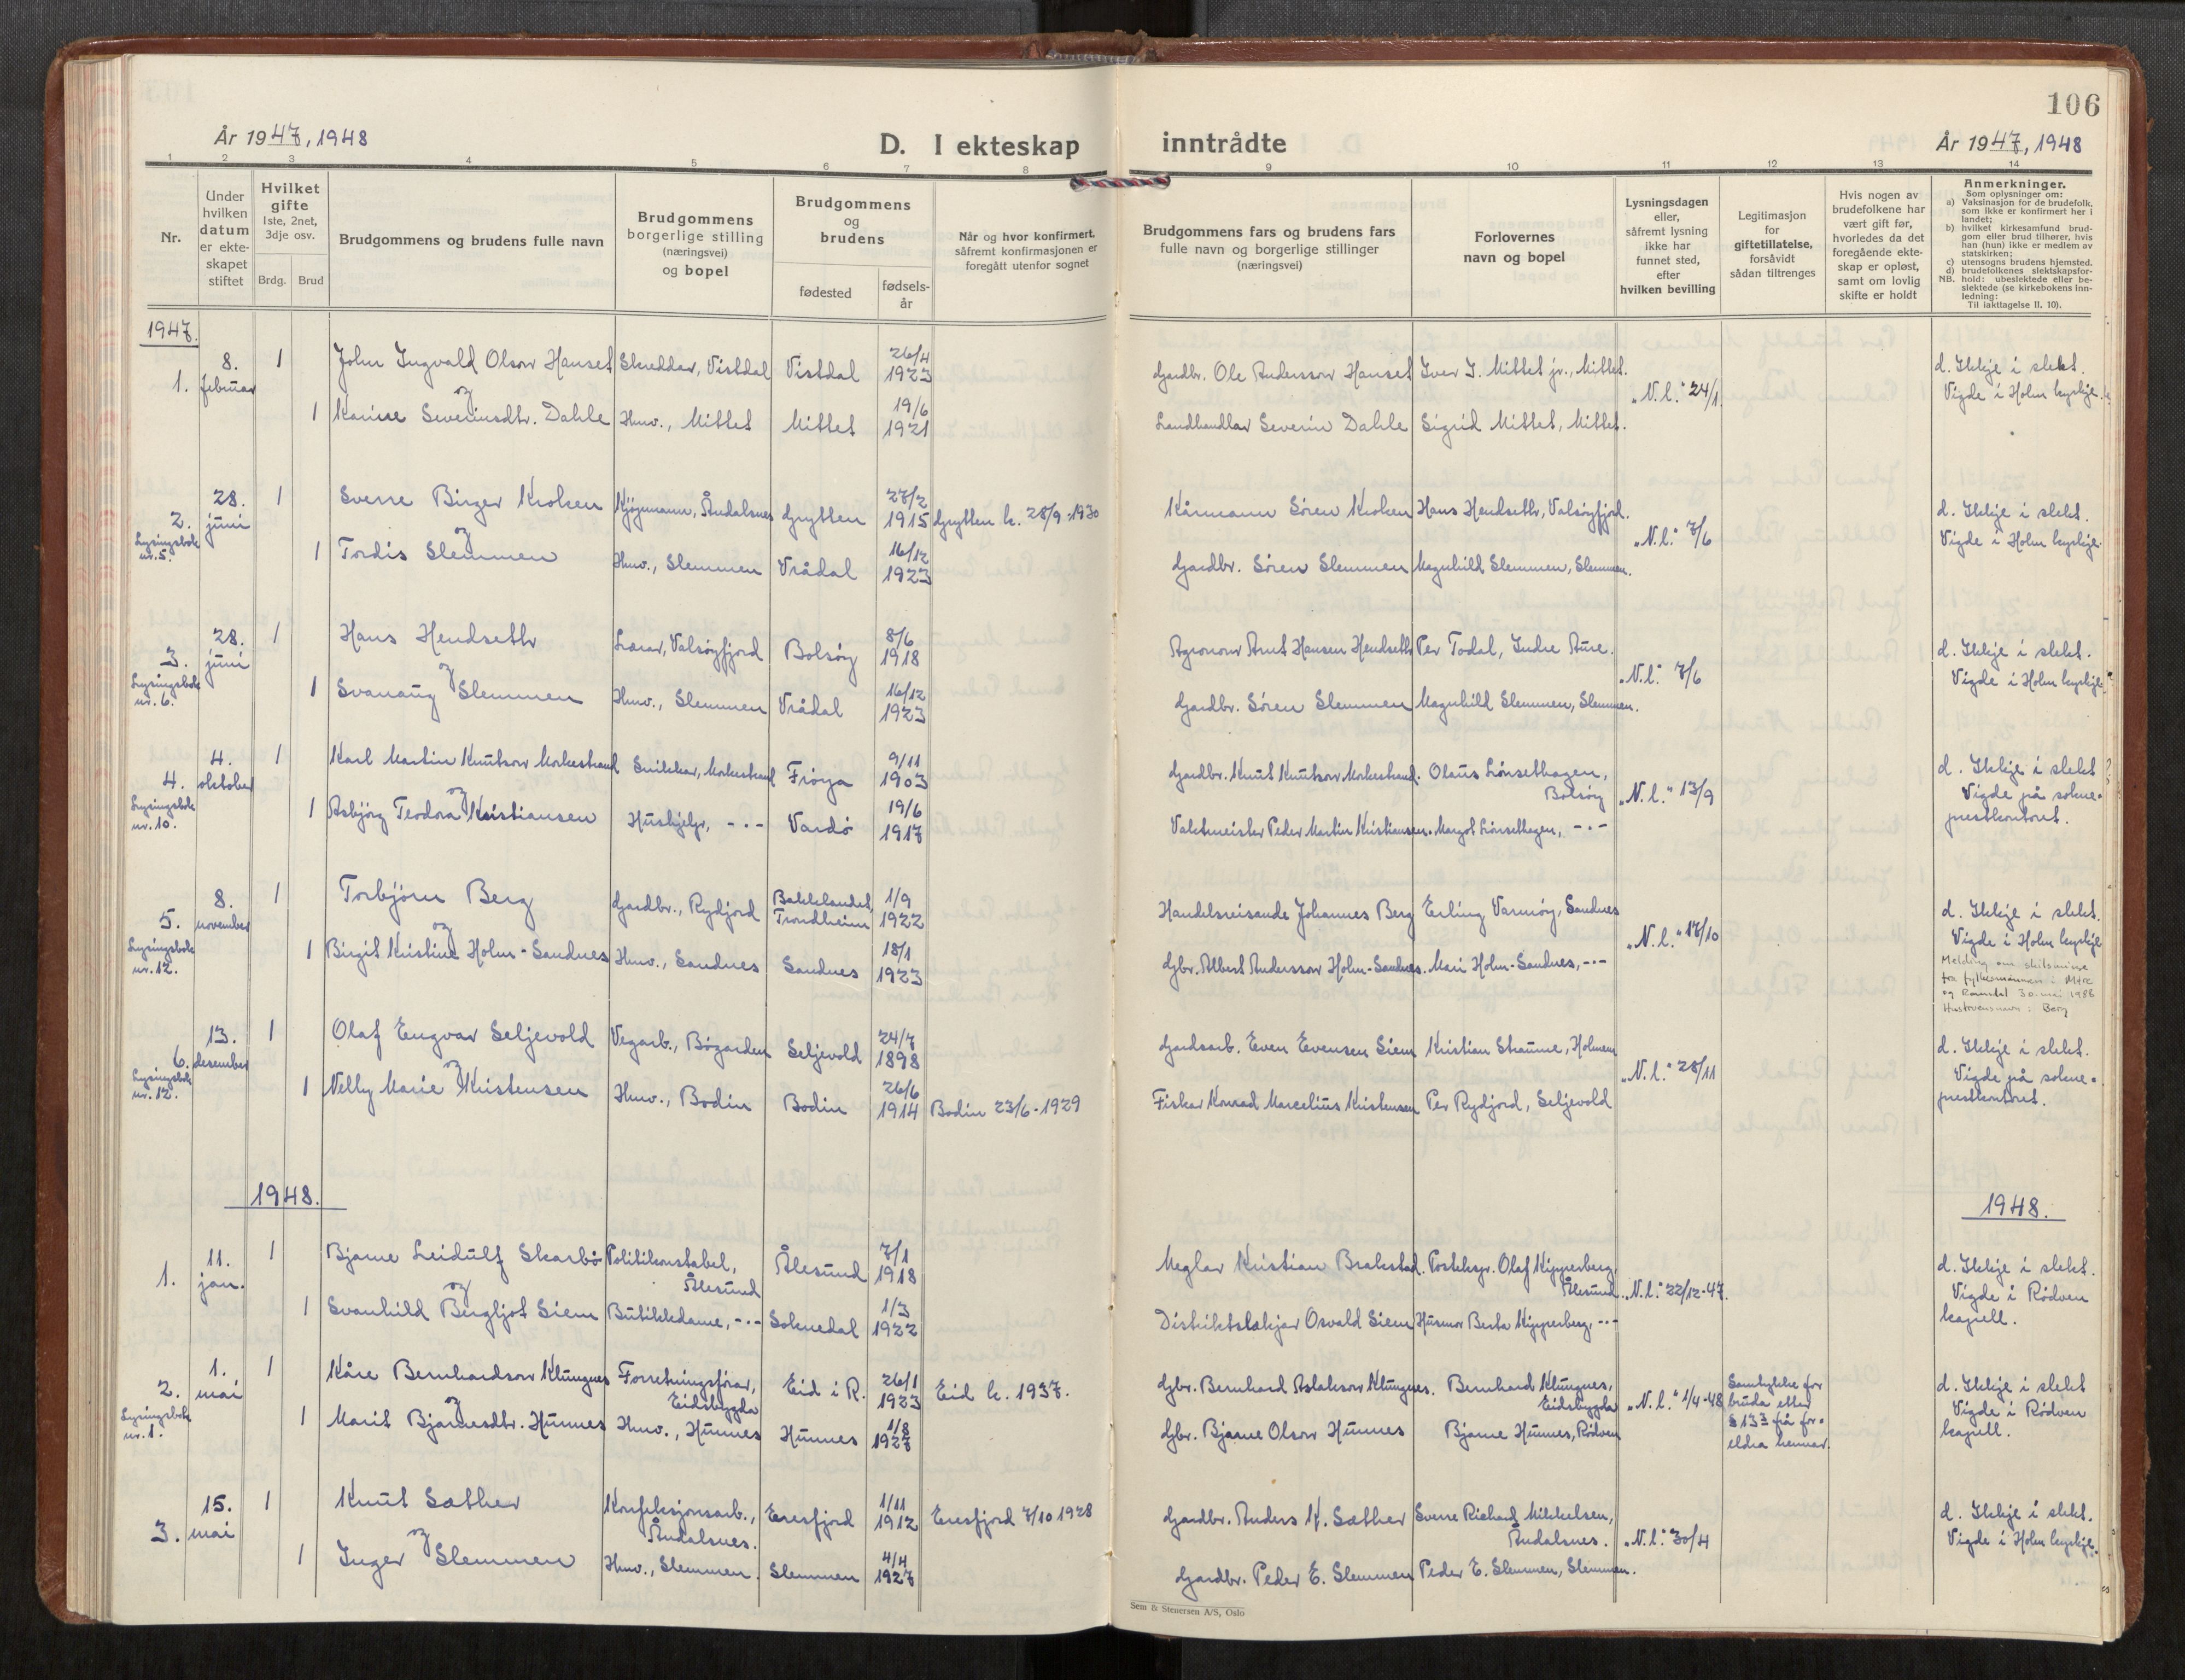 106
År 1947, 1948
D. I ekteskap
inntrådte
År 1947, 1948
1 2 3 4 5 6 7 8 9 10 11 12 13 14
Nr.
Under
hvilken
datum
er ekte-
skapet
stiftet
Hvilket
gifte
1ste, 2net,
3dje osv.
Brdg. Brud
Brudgommens og brudens fulle navn
Brudgommens
borgerlige stilling
(næringsvei)
og bopel
Brudgommens
og
brudens
fødested
fødsels-
år
Når og hvor konfirmert,
såfremt konfirmasjonen er
foregått utenfor sognet
Brudgommens fars og brudens fars
fulle navn og borgerlige stillinger
(næringsvei)
Forlovernes
navn og bopel
Lysningsdagen
eller,
såfremt lysning
ikke har
funnet sted,
efter
hvilken bevilling
Legitimasjon
for
giftetillatelse,
forsåvidt
sådan tiltrenges
Hvis nogen av
brudefolkene har
vært gift før,
hvorledes da det
foregående ekte-
skap er opløst,
samt om lovlig
skifte er holdt
Anmerkninger.
Som oplysninger om:
a) Vaksinasjon for de brudefolk,
som ikke er konfirmert her i
landet;
b) hvilket kirkesamfund brud-
gom eller brud tilhører, hvis
han (hun) ikke er medlem av
statskirken;
c) utensogns brudens hjemsted.
d) brudefolkenes slektskapsfor-
NB. hold: ubeslektede eller be-
slektede (se kirkebokens inn-
ledning:
Til iakttagelse II. 10).
1947.
1. 8. februar 1 John Ingvald Olson Hanset Skreddar, Vistdal Vistdal 26/4 1923 Gardbr. Ole Andersson Hanset Iver J. Mittet jr., Mittet. "N.l." 24/1 d. Ikkje i slekt.
Vigde i Holm kyrkje.
og
1 Karine Severinsdtr. Dahle Husv., Mittet Mittet 19/6 1921 Landhandlar Severin Dahle Sigrid Mittet, Mittet.
2. 28. juni 1 Sverre Birger Kroken Kjøpmann, Åndalsnes Grytten 27/2 1915 Grytten k. 28/9-1930 Kårmann Søren Kroken Hans Hendseth, Valsøyfjord. "N.l." 7/6 d. Ikkje i slekt.
Vigde i Holm kyrkje.
Lysingsbok
nr. 5.
og
1 Tordis Slemmen Husv., Slemmen Vrådal 16/12 1923 Gardbr. Søren Slemmen Magnhild Slemmen, Slemmen.
3. 28. juni 1 Hans Hendseth Lærar, Valsøyfjord Bolsøy 8/6 1918 Agronom Arnt Hansen Hendseth Per Todal, Indre Aure. "N.l." 7/6 d. Ikkje i slekt.
Vigde i Holm kyrkje
Lysingsbok
nr. 6.
og
1 Svanaug Slemmen Husv., Slemmen Vrådal 16/12 1923 Gardbr. Søren Slemmen Magnhild Slemmen, Slemmen.
4. 4. oktober 1 Karl Martin Knutson Morkestrand Snikkar, Morkestrand Frøya 9/11 1903 Gardbr. Knut Knutson Morkestrand. Olaus Lønsethagen,
Bolsøy "N.l." 13/9 d. Ikkje i slekt
Vigde på sokne-
prestkontoret.
Lysingsbok
nr. 10.
og
1 Asbjørg Teodora Kristiansen Hushjelp, -"- Vardø 19/6 1917 Vaktmeister Peder Martin Kristiansen. Margot Lønsethagen, -"-
5. 8. november 1 Torbjørn Berg Gardbr., Rydjord Bakklandet,
Trondheim 1/9 1922 Handelsreisande Johannes Berg Erling Varmøy, Sandnes "N.l." 17/10 d. Ikkje i slekt.
Vigde i Holm kyrkje
Lysingsbok
nr. 12.
og
1 Birgit Kristine Holm-Sandnes Husv., Sandnes Sandnes 18/1 1923 Gbr. Albert Andersson Holm-Sandnes. Mari Holm-Sandnes, -"-
Melding om skilsmisse
fra fylkesmannen i Møre
og Romsdal 30. mai 1988
Hustruens navn: Berg
6. 13. desember 1 Olaf Engvar Seljevold Vegarb., Bøgarden Seljevold 24/7 1898 Gardsarb. Even Evensen Siem Kristian Straume, Holmem "N.l." 28/11 d. Ikkje i slekt.
Vigde på sokne-
prestkontoret.
Lysingsbok
nr. 12.
og
1 Nelly Marie Kristensen Husv., Bodin Bodin 26/6 1914 Bodin 23/6-1929 Fiskar Konrad Marcelius Kristensen Per Rydjord, Seljevold
1948. 1948.
1. 11. jan. 1 Bjarne Leidulf Skarbø Politikonstabel,
Ålesund Ålesund 7/1 1918 Meglar Kristian Brakstad. Posteksp. Olaf Kipperberg,
Ålesund "N.l." 22/12-47. d. Ikkje i slekt.
Vigde i Rødven
kapell.
og
1 Svanhild Bergljot Siem Butikkdame, -"- Soknedal 1/3 1922 Distriktslækjar Osvald Siem Husmor Berta Kipperberg, -"-
2. 1. mai 1 Kåre Bernhardson Klungnes Forretningsførar,
Eidsbygda Eid i R. 26/1 1923 Eid k. 1937. Gbr. Bernhard Aslakson Klungnes. Bernhard Klungnes,
Eidsbygda "N.l." 1/4-48 Samtykke for
bruda etter
§ 13 3 frå for-
eldra hennar. d. Ikkje i slekt
Vigde i Rødven
kapell.
Lysingsbok
nr. 1.
og
1 Marit Bjarnesdtr. Hunnes Husv., Hunnes Hunnes 1/8 1927 Gbr. Bjarne Olson Hunnes Bjarne Hunnes, Rødven
3. 15. mai 1 Knut Sæther Konfeksjonsarb.,
Åndalsnes. Eresfjord 1/11 1912 Eresfjord 7/10 1928 Gardbr. Anders K. Sæther Sverre Richard Mikkelsen,
Åndalsnes. "N.l." 30/4 d. Ikkje i slekt.
Vigde i Holm kyrkje.
og
1 Inger Slemmen Husv., Slemmen. Slemmen 4/4 1927 Gardbr. Peder E. Slemmen Peder E. Slemmen, Slemmen.
Sem & Stenersen A/S, Oslo